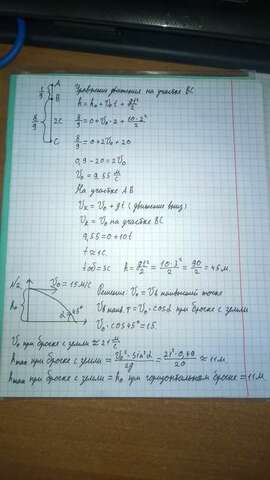 A
1/9
B
8/9
2C
C
Уравнение движения на участке BC
h = h₀ + V₀t + gt²/2
8/9 = 0 + V₀·2 + 10·2²/2
8/9 = 0 + 2V₀ + 20
0,9 - 20 = 2V₀
V₀ = 9.55 м/с
На участке AB
Vк = V₀ + gt (движение вниз)
Vк = V₀ на участке BC
9,55 = 0 + 10t
t ≈ 1с
tоб = 3с h = gt²/2 = 10·3²/2 = 90/2 = 45м
N2. V₀ = 15 м/с
h₀
α = 45°
Решение V₀ = V в наивысшей точке
V в наив. т = V₀·cosα при броске с земли
V₀·cos45° = 15
V₀ при броске с земли ≈ 21 м/с
hmax при броске с земли = V₀²·sin²α/2g = 21²·0,49/20 ≈ 11м
hmax при броске с земли = h₀ при горизонтальном броске = 11м